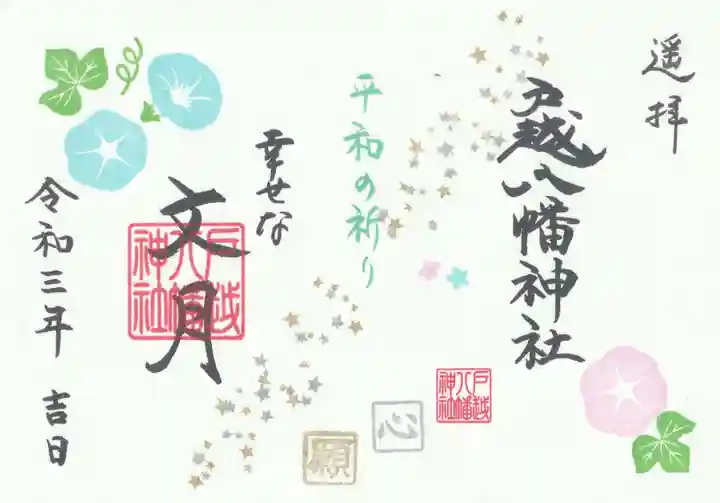 遥拝
戸越八幡神社
平和の祈り
幸せな
文月
令和三年 吉日
戸越八幡神社
戸越八幡神社
心
願